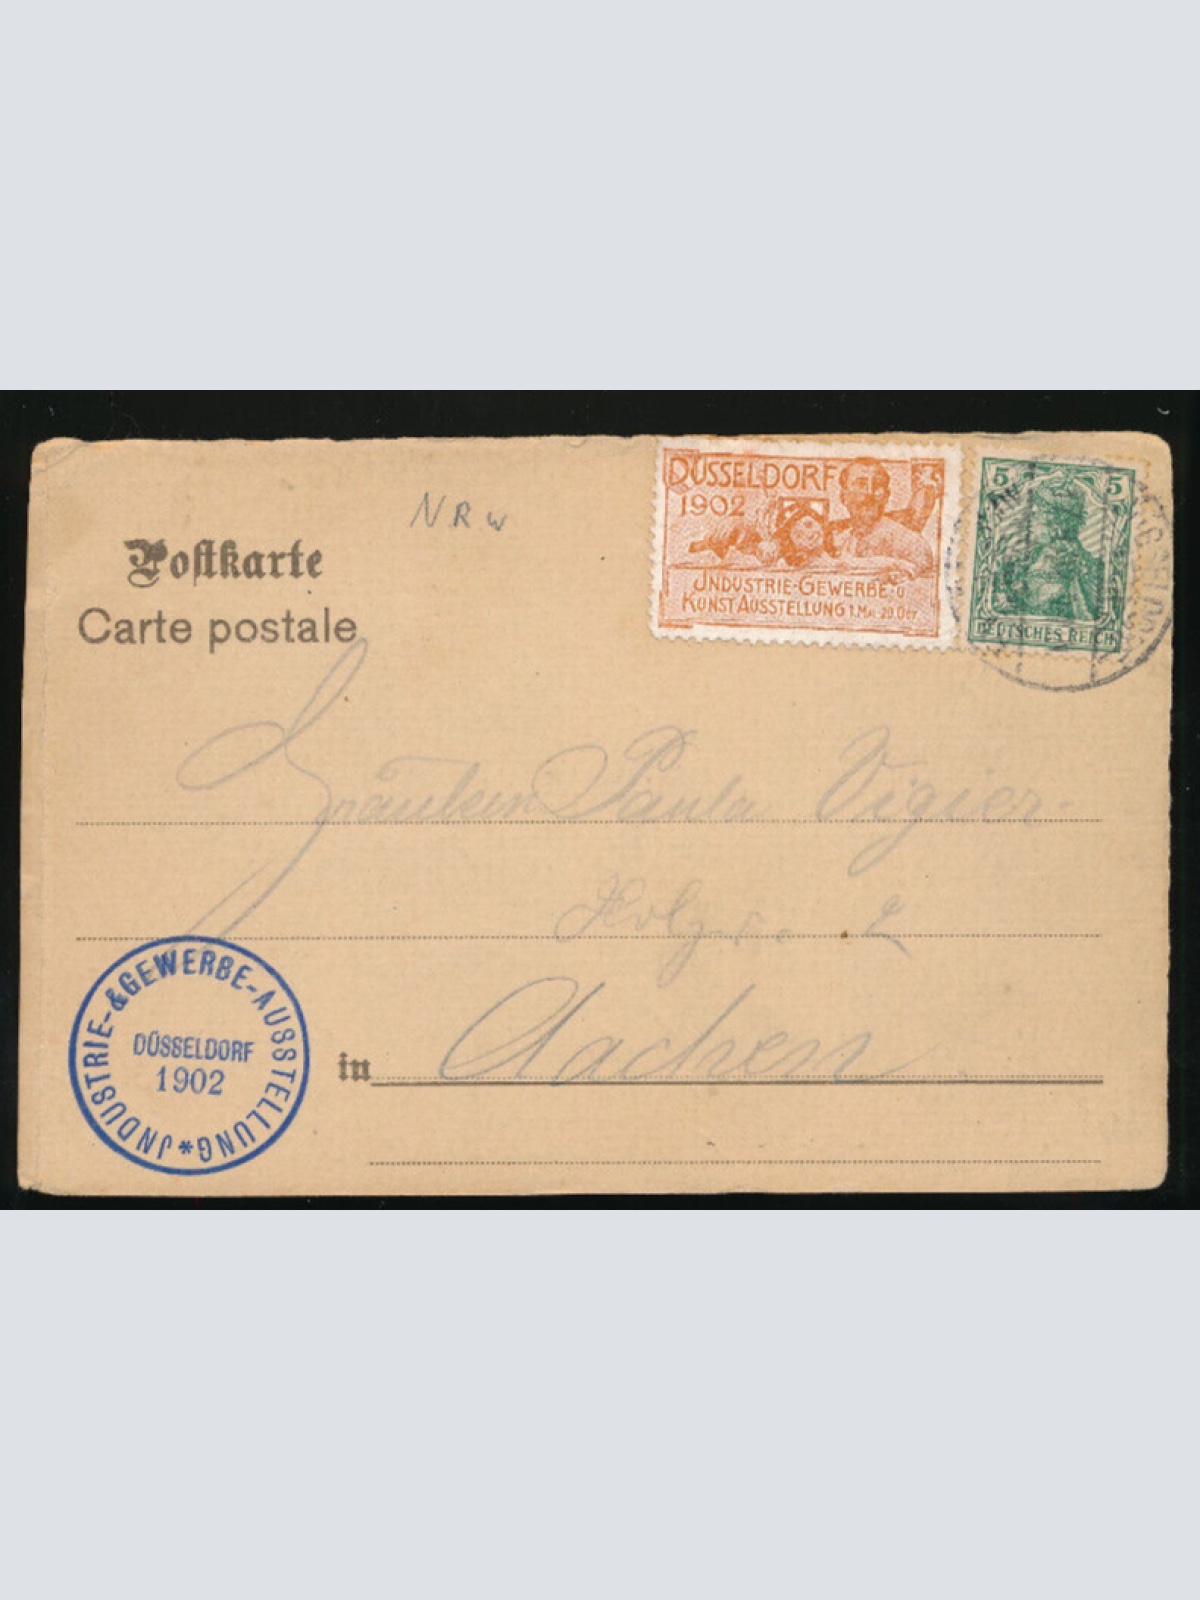 NRW
Postkarte
Carte postale
DÜSSELDORF
1902
JNDUSTRIE-GEWERBE-U
KUNST AUSSTELLUNG 1. MAI 20. OCT
5 5
DEUTSCHES REICH
Fräulein Paula Vigier.
2
in Aachen
JNDUSTRIE-&GEWERBE-AUSSTELLUNG*
DÜSSELDORF
1902